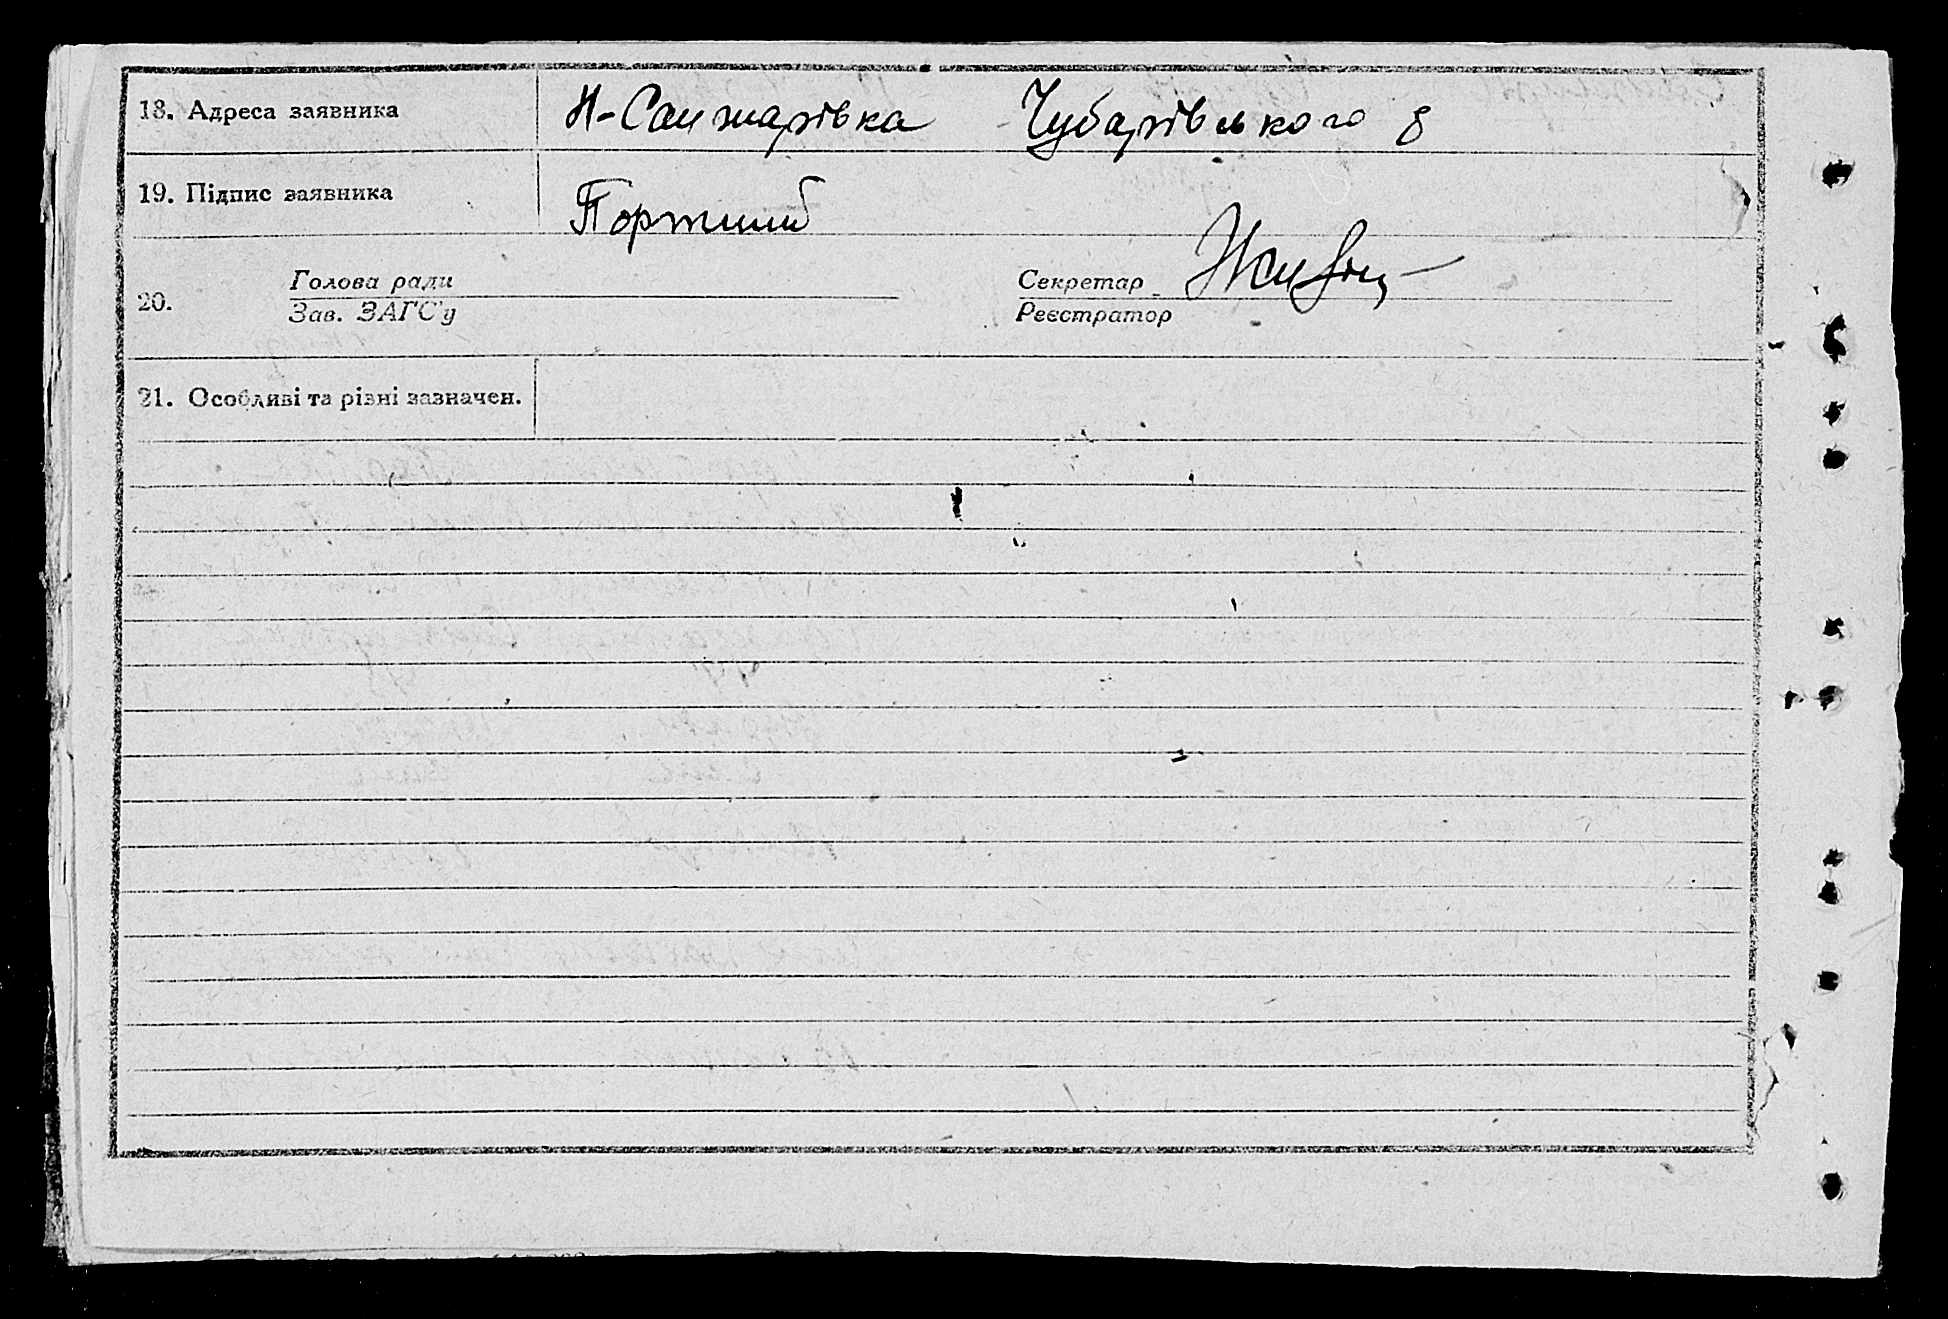 18. Адреса заявника Н-Санжарівка Чубарівського р
19. Підпис заявника
20. Голова ради Секретар
Зав. ЗАГС'у Реєстратор
21. Особливі та різні зазначен.